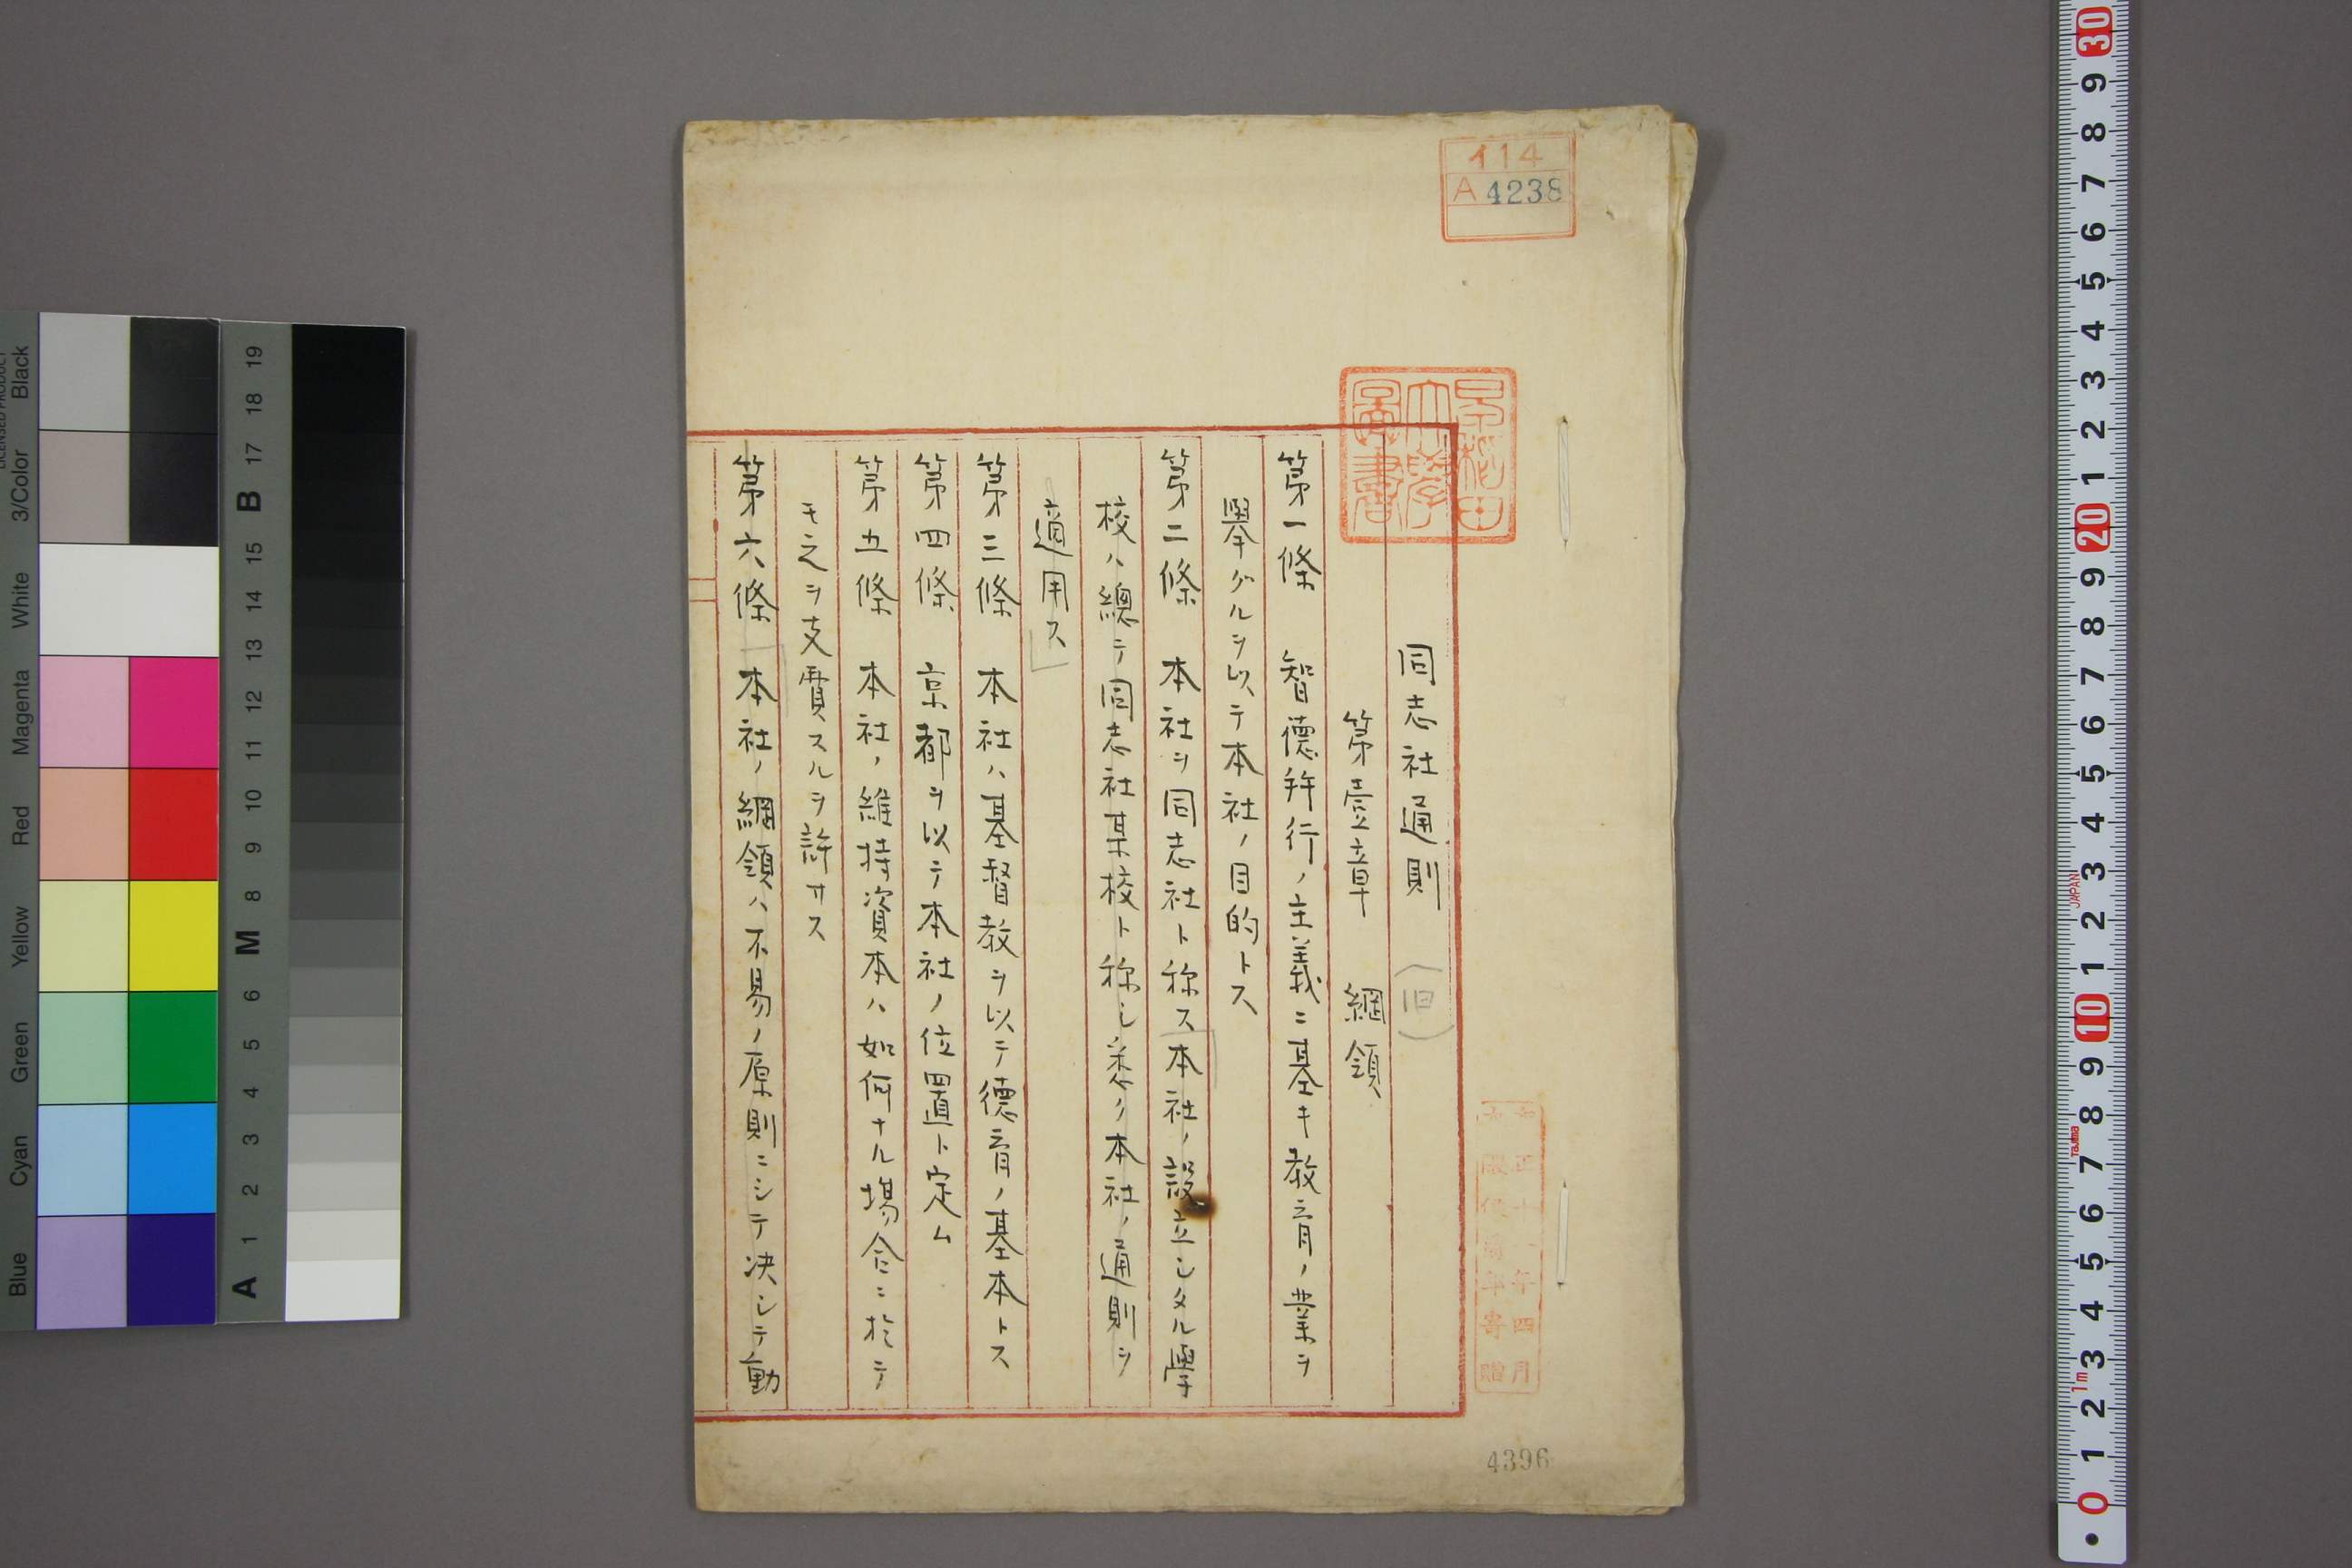 同志社通則（旧）
第壹章　綱領
第一條　智德幷行ノ主義ニ基キ敎育ノ業ヲ
擧グルヲ以テ本社ノ目的トス
第二條　本社ヲ同志社ト称ス本社ノ設立シタル學
校ハ總テ同志社某校ト称シ悉ク本社ノ通則ヲ
適用ス」
第三條　本社ハ基督敎ヲ以テ德育ノ基本トス
第四條　京都ヲ以テ本社ノ位置ト定ム
第五條　本社ノ維持資本ハ如何ナル場合ニ於テ
モ之ヲ支費スルヲ許サス
第六條　本社ノ綱領ハ不易ノ原則ニシテ决シテ動
イ14
A 4238
早稻田
大學
圖書
大正十一年四月
大隈侯爵家寄贈
4396
LICENSED PRODUCT
Black
3/Color
White
Magenta
Red
Yellow
Green
Cyan
Blue
19
18
17
B
15
14
13
12
11
10
9
8
M
6
5
4
3
2
1
A
30
9
8
7
6
5
4
3
2
1
20
9
8
7
6
5
4
3
JAPAN
2
1
10
9
8
Tajima
7
6
5
4
3
1m
2
1
0